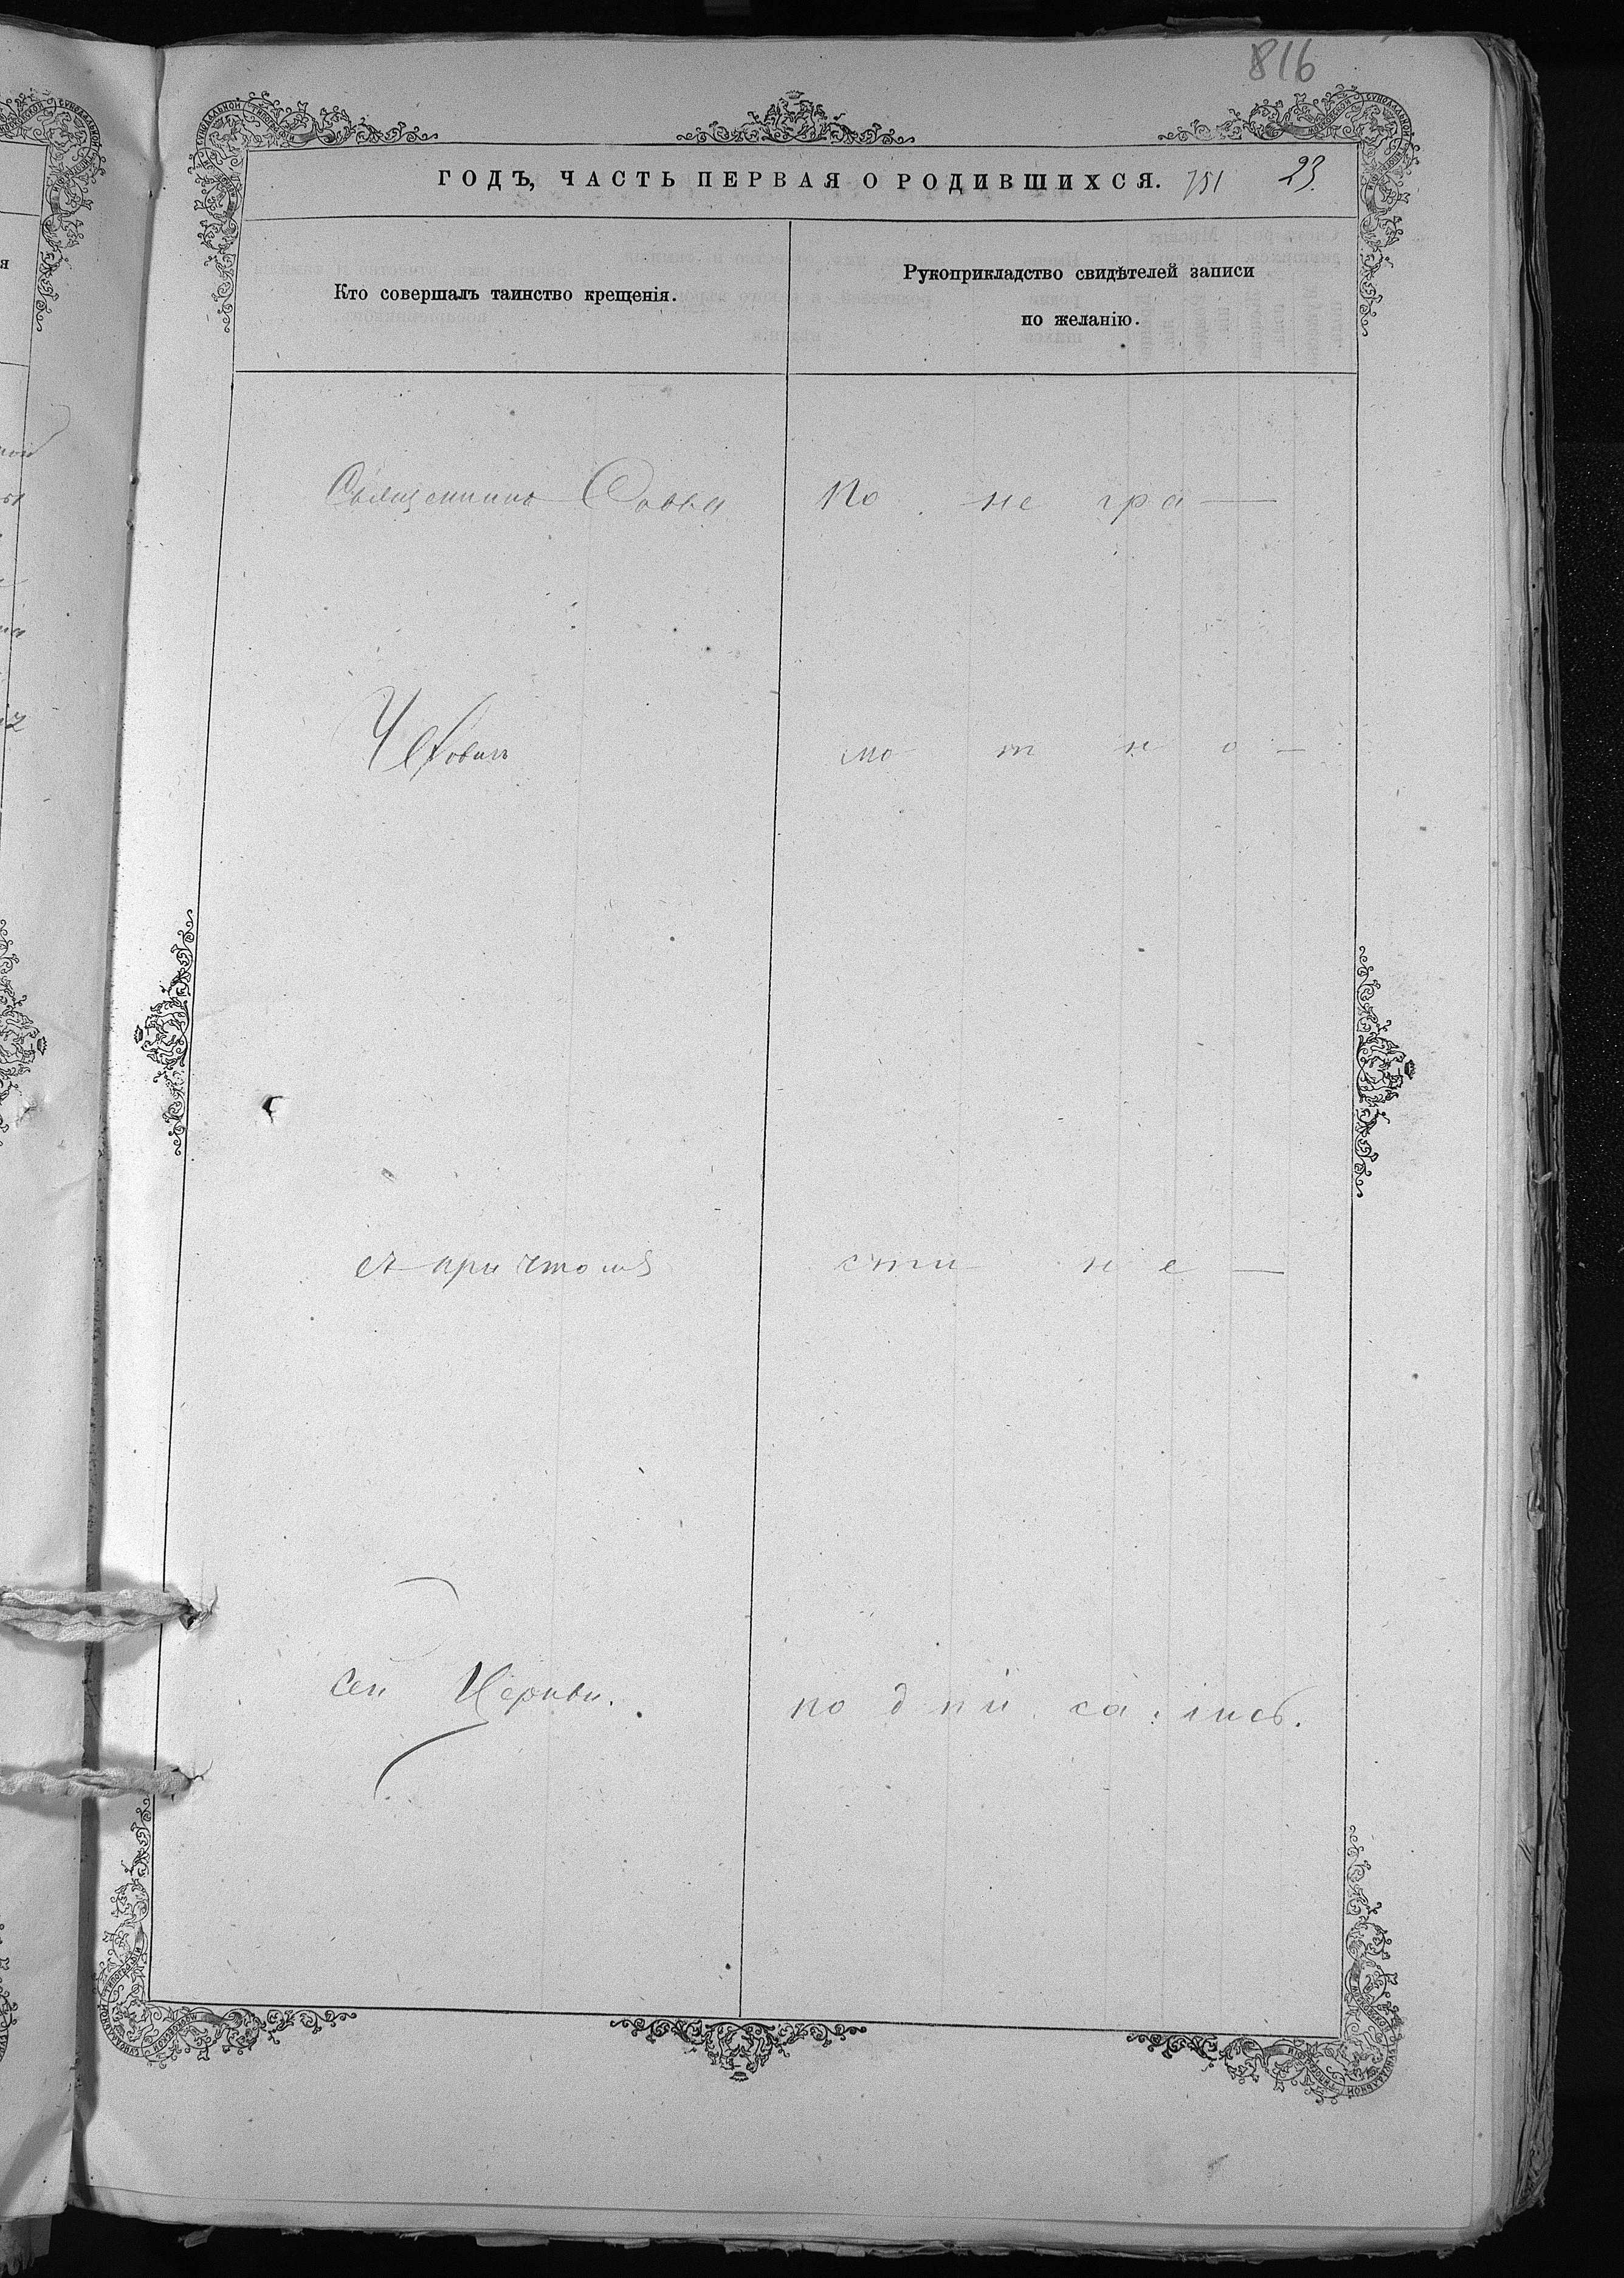 816
ГОДЪ, ЧАСТЬ ПЕРВАЯ О РОДИВШИХСЯ. 751 23.
Кто совершалъ таинство крещенія.
Рукоприкладство свидѣтелей записи
по желанію.
Священникъ Савва
По не гра—
мо т н о —
съ причтомъ
сти н е —
сей Церкви.
по д пи са: лись.